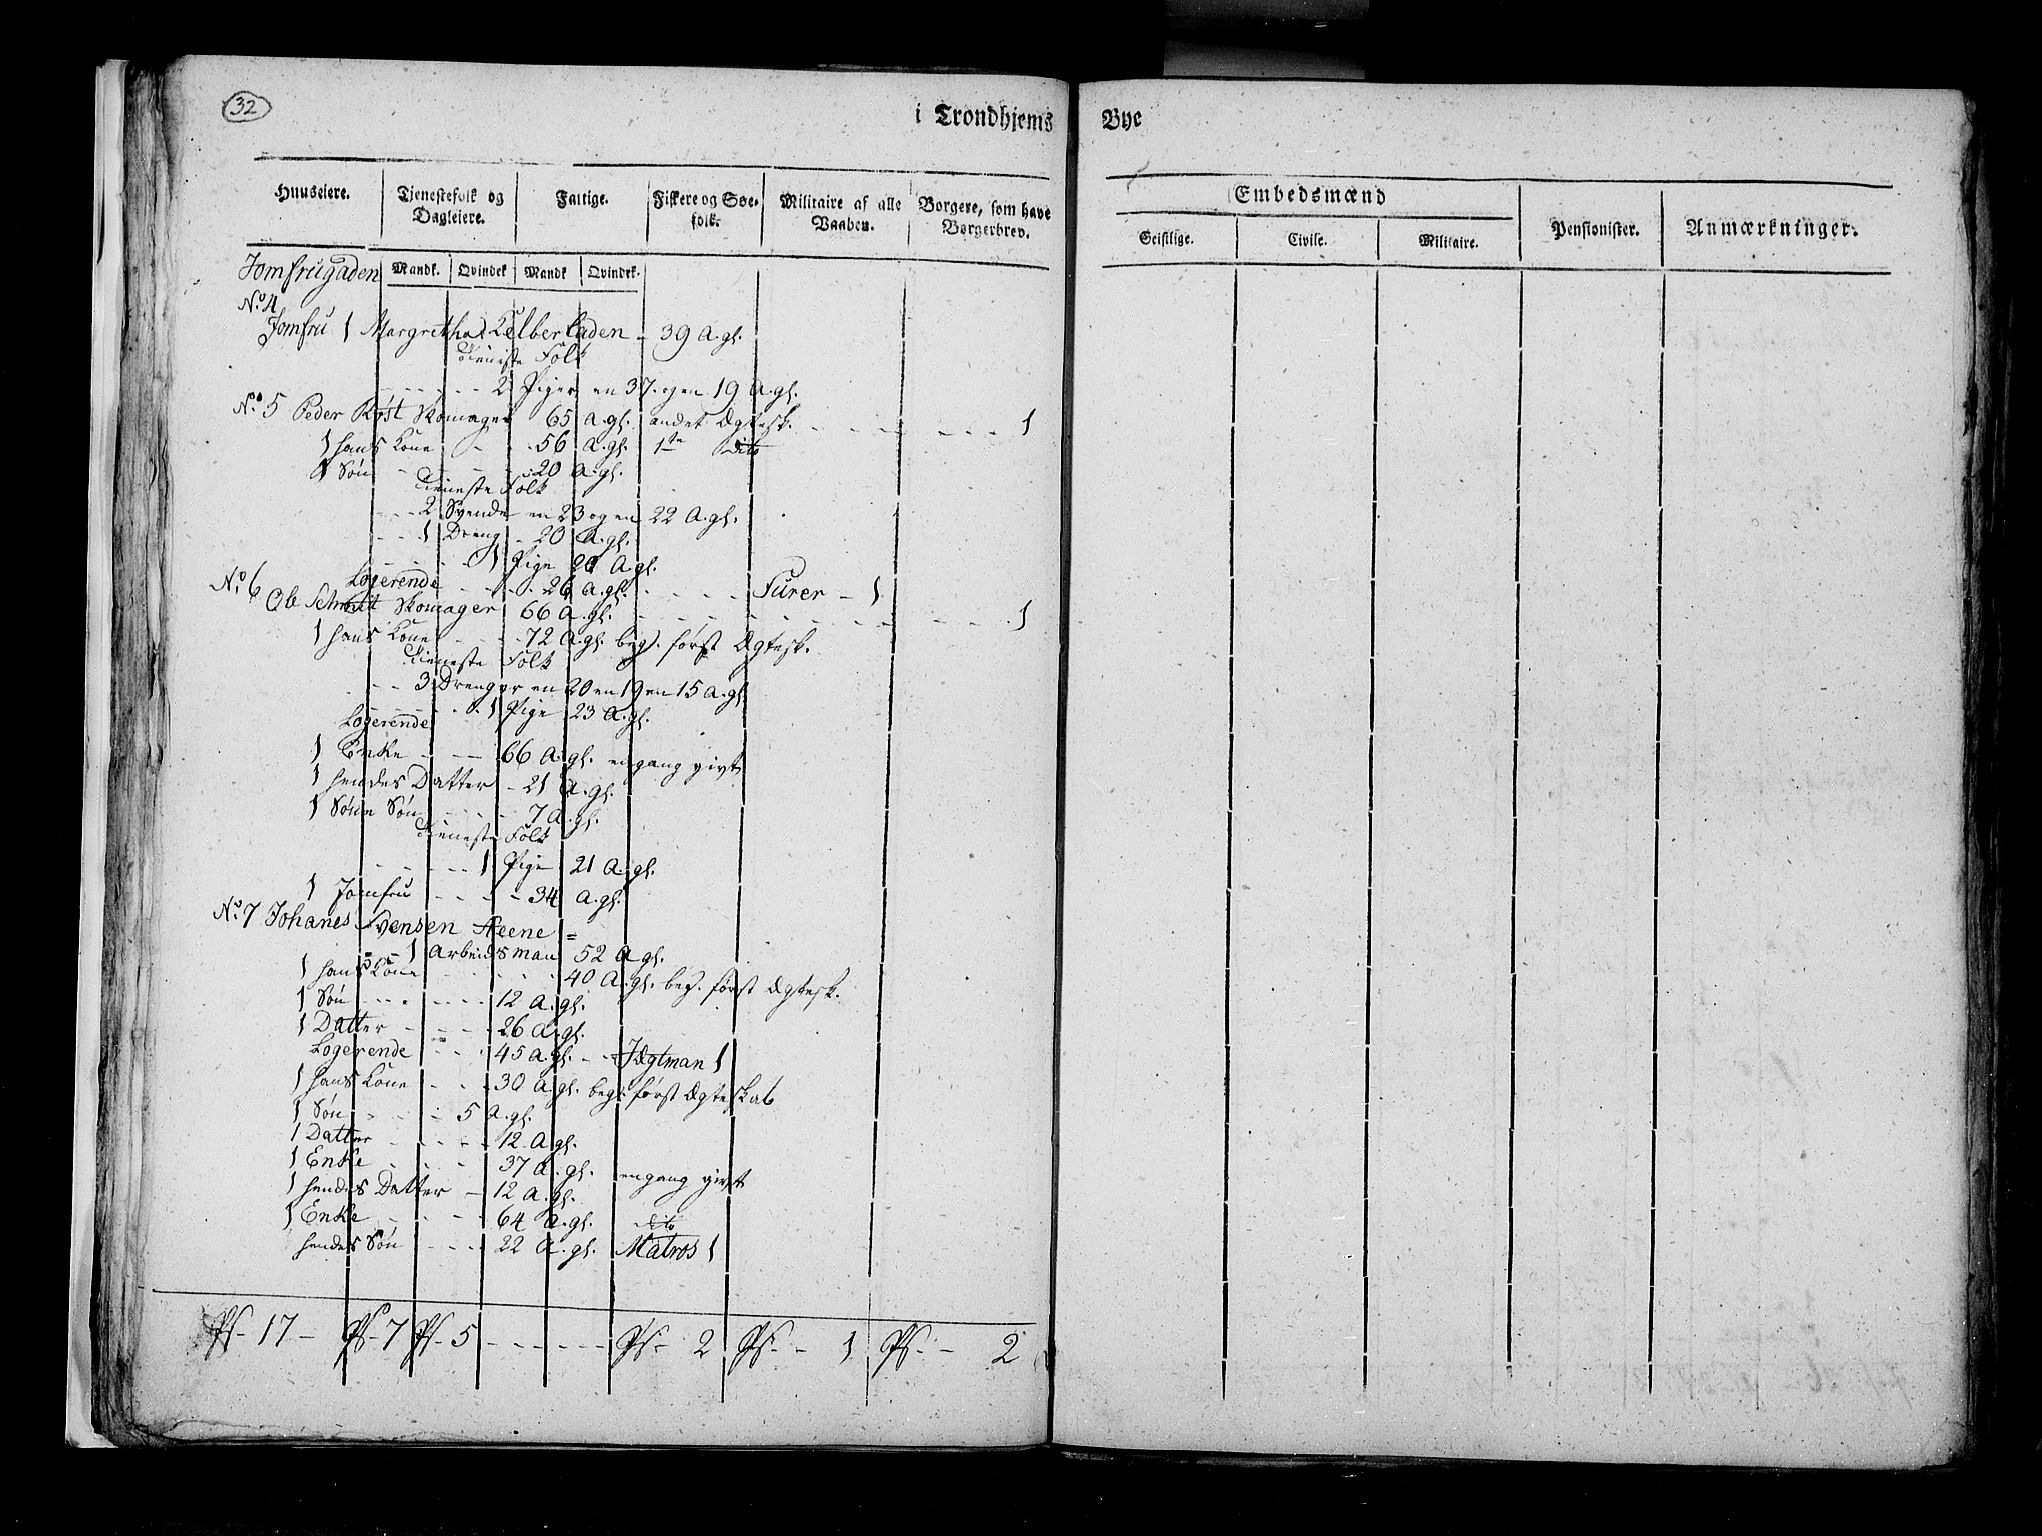 32
i Trondhjems Bye
Huuseiere. Tjenestefolk og Dagleiere. Fattige. Fiskere og Søefolk. Militaire af alle Vaaben. Borgere, som have Borgerbrev.
Embedsmænd
Geistlige. Civile. Militaire. Pensionister. Anmærkninger.
Mandk. Qvindek Mandk Qvindek.
Jomfrugaden
No. 4
Jomfru 1 Margretha Elberladen - 39 A. gl.
Tieniste Folk
2 Piger en 37. og en 19 A. gl.
No. 5 Peder Røst Skomager 65 A. gl. andet Ægtesk. 1
1 hans Kone 56 A. gl. 1te dito
1 Søn 20 A. gl.
Tieneste Folk
2 Svende en 23 og en 22 A. gl.
1 Dreng - 20 A. gl.
1 Pige 20 A. gl.
Logerende 26 A. gl. Furer - 1
No. 6 Ole Schmit Skomager 66 A. gl. 1
1 hans Kone 72 A. gl. beg. først Ægtesk.
Tieneste Folk
3 Drenger en 20 en 19 en 15 A. gl.
1 Pige 23 A. gl.
Logerende
1 Enke 66 A. gl. engang givt
1 hendes Datter - 21 A. gl.
1 Sønne Søn 7 A. gl.
Tieneste Folk
1 Pige 21 A. gl.
1 Jomfru 34 A. gl.
No. 7 Johanes Svensen Steene =
1 Arbeidsman 52 A. gl.
1 hans Kone 40 A. gl. beg. først Ægtesk.
1 Søn 12 A. gl.
1 Datter 26 A. gl.
Logerende 45 A. gl. Jægtman 1
1 hans Kone 30 A. gl. beg. først Ægteskab
1 Søn 5 A. gl.
1 Datter 12 A. gl.
1 Enke 37 A. gl. engang givt
1 hendes Datter - 12 A. gl.
1 Enke 64 A. gl. dito
hendes Søn 22 A. gl. Matros 1
Ps - 17 - Ps - 7 Ps - 5 Ps - 2 Ps - 1 Ps - 2